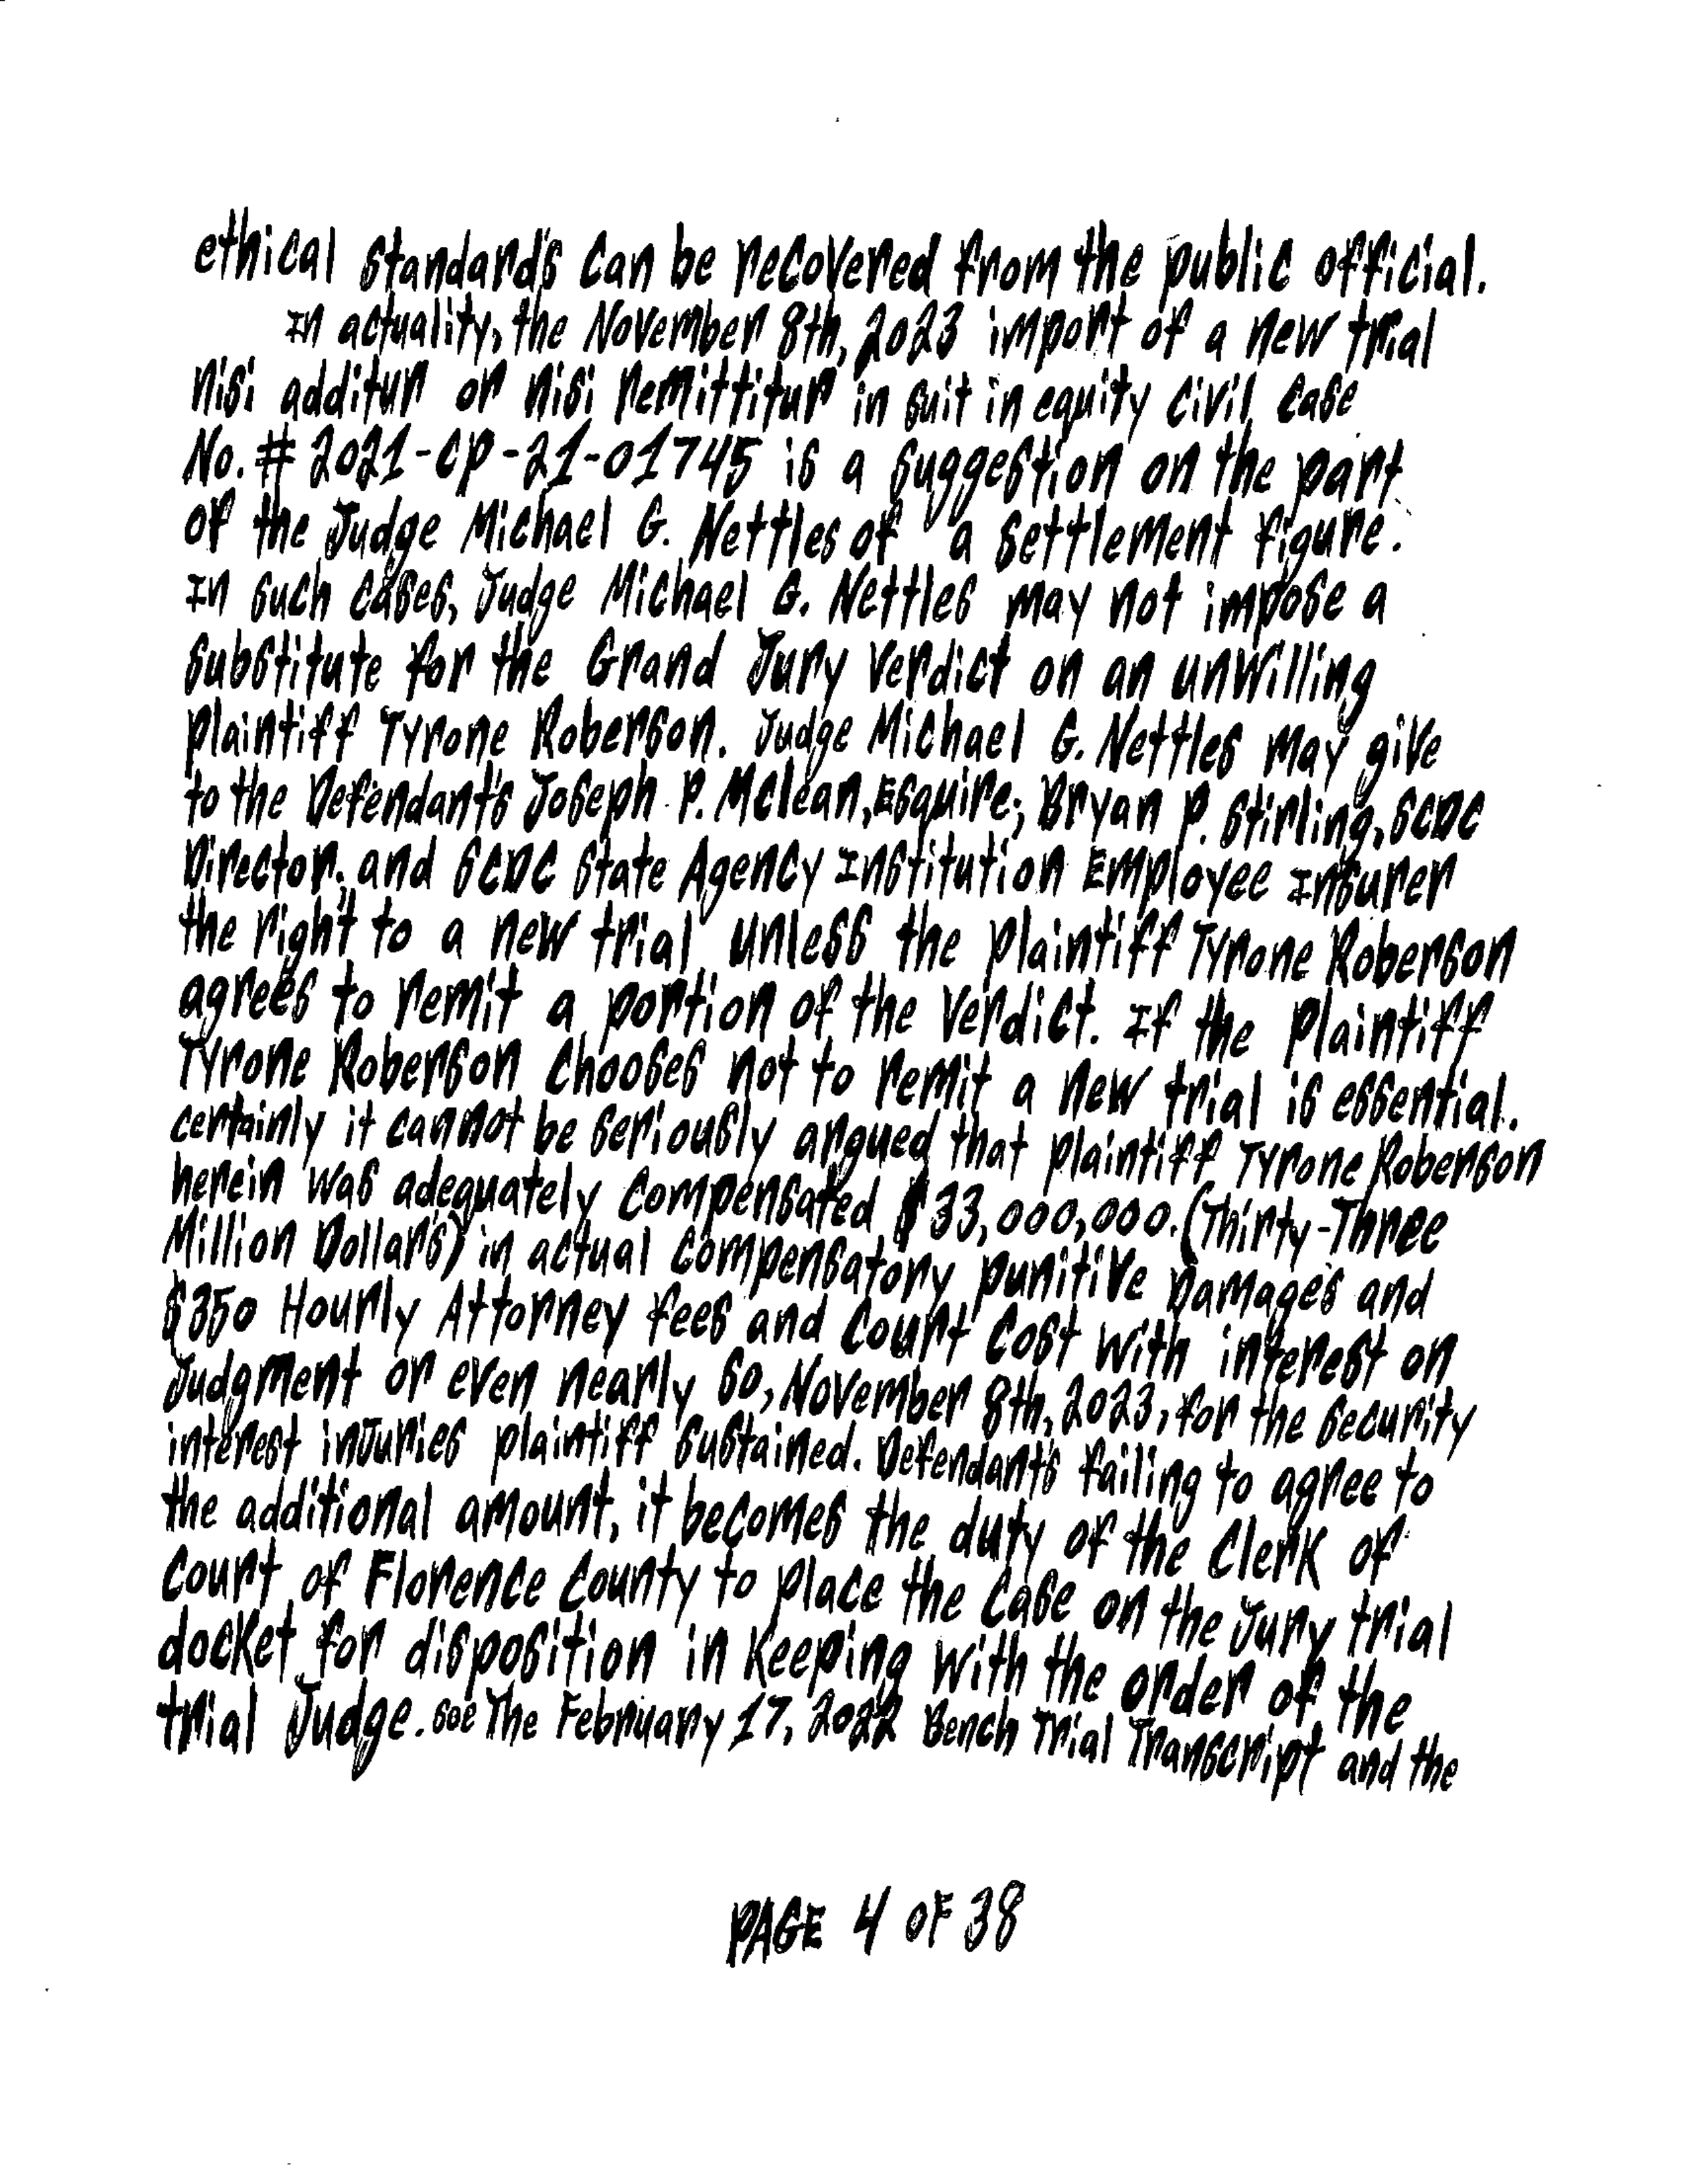 ethical standard's can be recovered from the public official.
In actuality, the November 8th, 2023 import of a new trial
nisi additur or nisi remittitur in suit in equity civil case
No. # 2021-CP-21-01745 is a suggestion on the part
of the Judge Michael G. Nettles of a settlement figure.
In such cases, Judge Michael G. Nettles may not impose a
substitute for the Grand Jury verdict on an unwilling
plaintiff Tyrone Roberson. Judge Michael G. Nettles may give
to the Defendant's Joseph P. McLean, Esquire; Bryan P. Stirling, SCDC
Director; and SCDC State Agency Institution Employee Insurer
the right to a new trial unless the plaintiff Tyrone Roberson
agrees to remit a portion of the verdict. If the plaintiff
Tyrone Roberson chooses not to remit a new trial is essential.
certainly it cannot be seriously argued that plaintiff Tyrone Roberson
herein was adequately compensated $33,000,000. (Thirty-Three
Million Dollar's) in actual compensatory punitive Damages and
$350 Hourly Attorney fees and court cost with interest on
Judgment or even nearly so, November 8th, 2023, for the security
interest injuries plaintiff sustained. Defendant's failing to agree to
the additional amount, it becomes the duty of the Clerk of
Court of Florence County to place the case on the Jury trial
docket for disposition in keeping with the order of the
trial Judge. see The February 17, 2022 Bench Trial Transcript and the
PAGE 4 OF 38